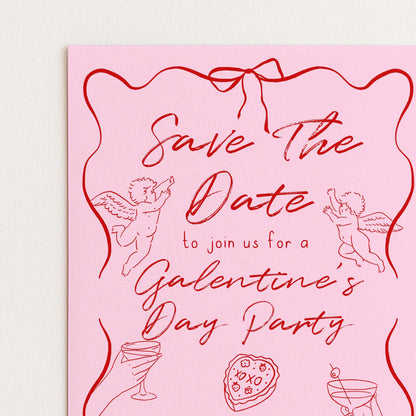 Save The
Date
to join us for a
Galentine's
Day Party
XOXO